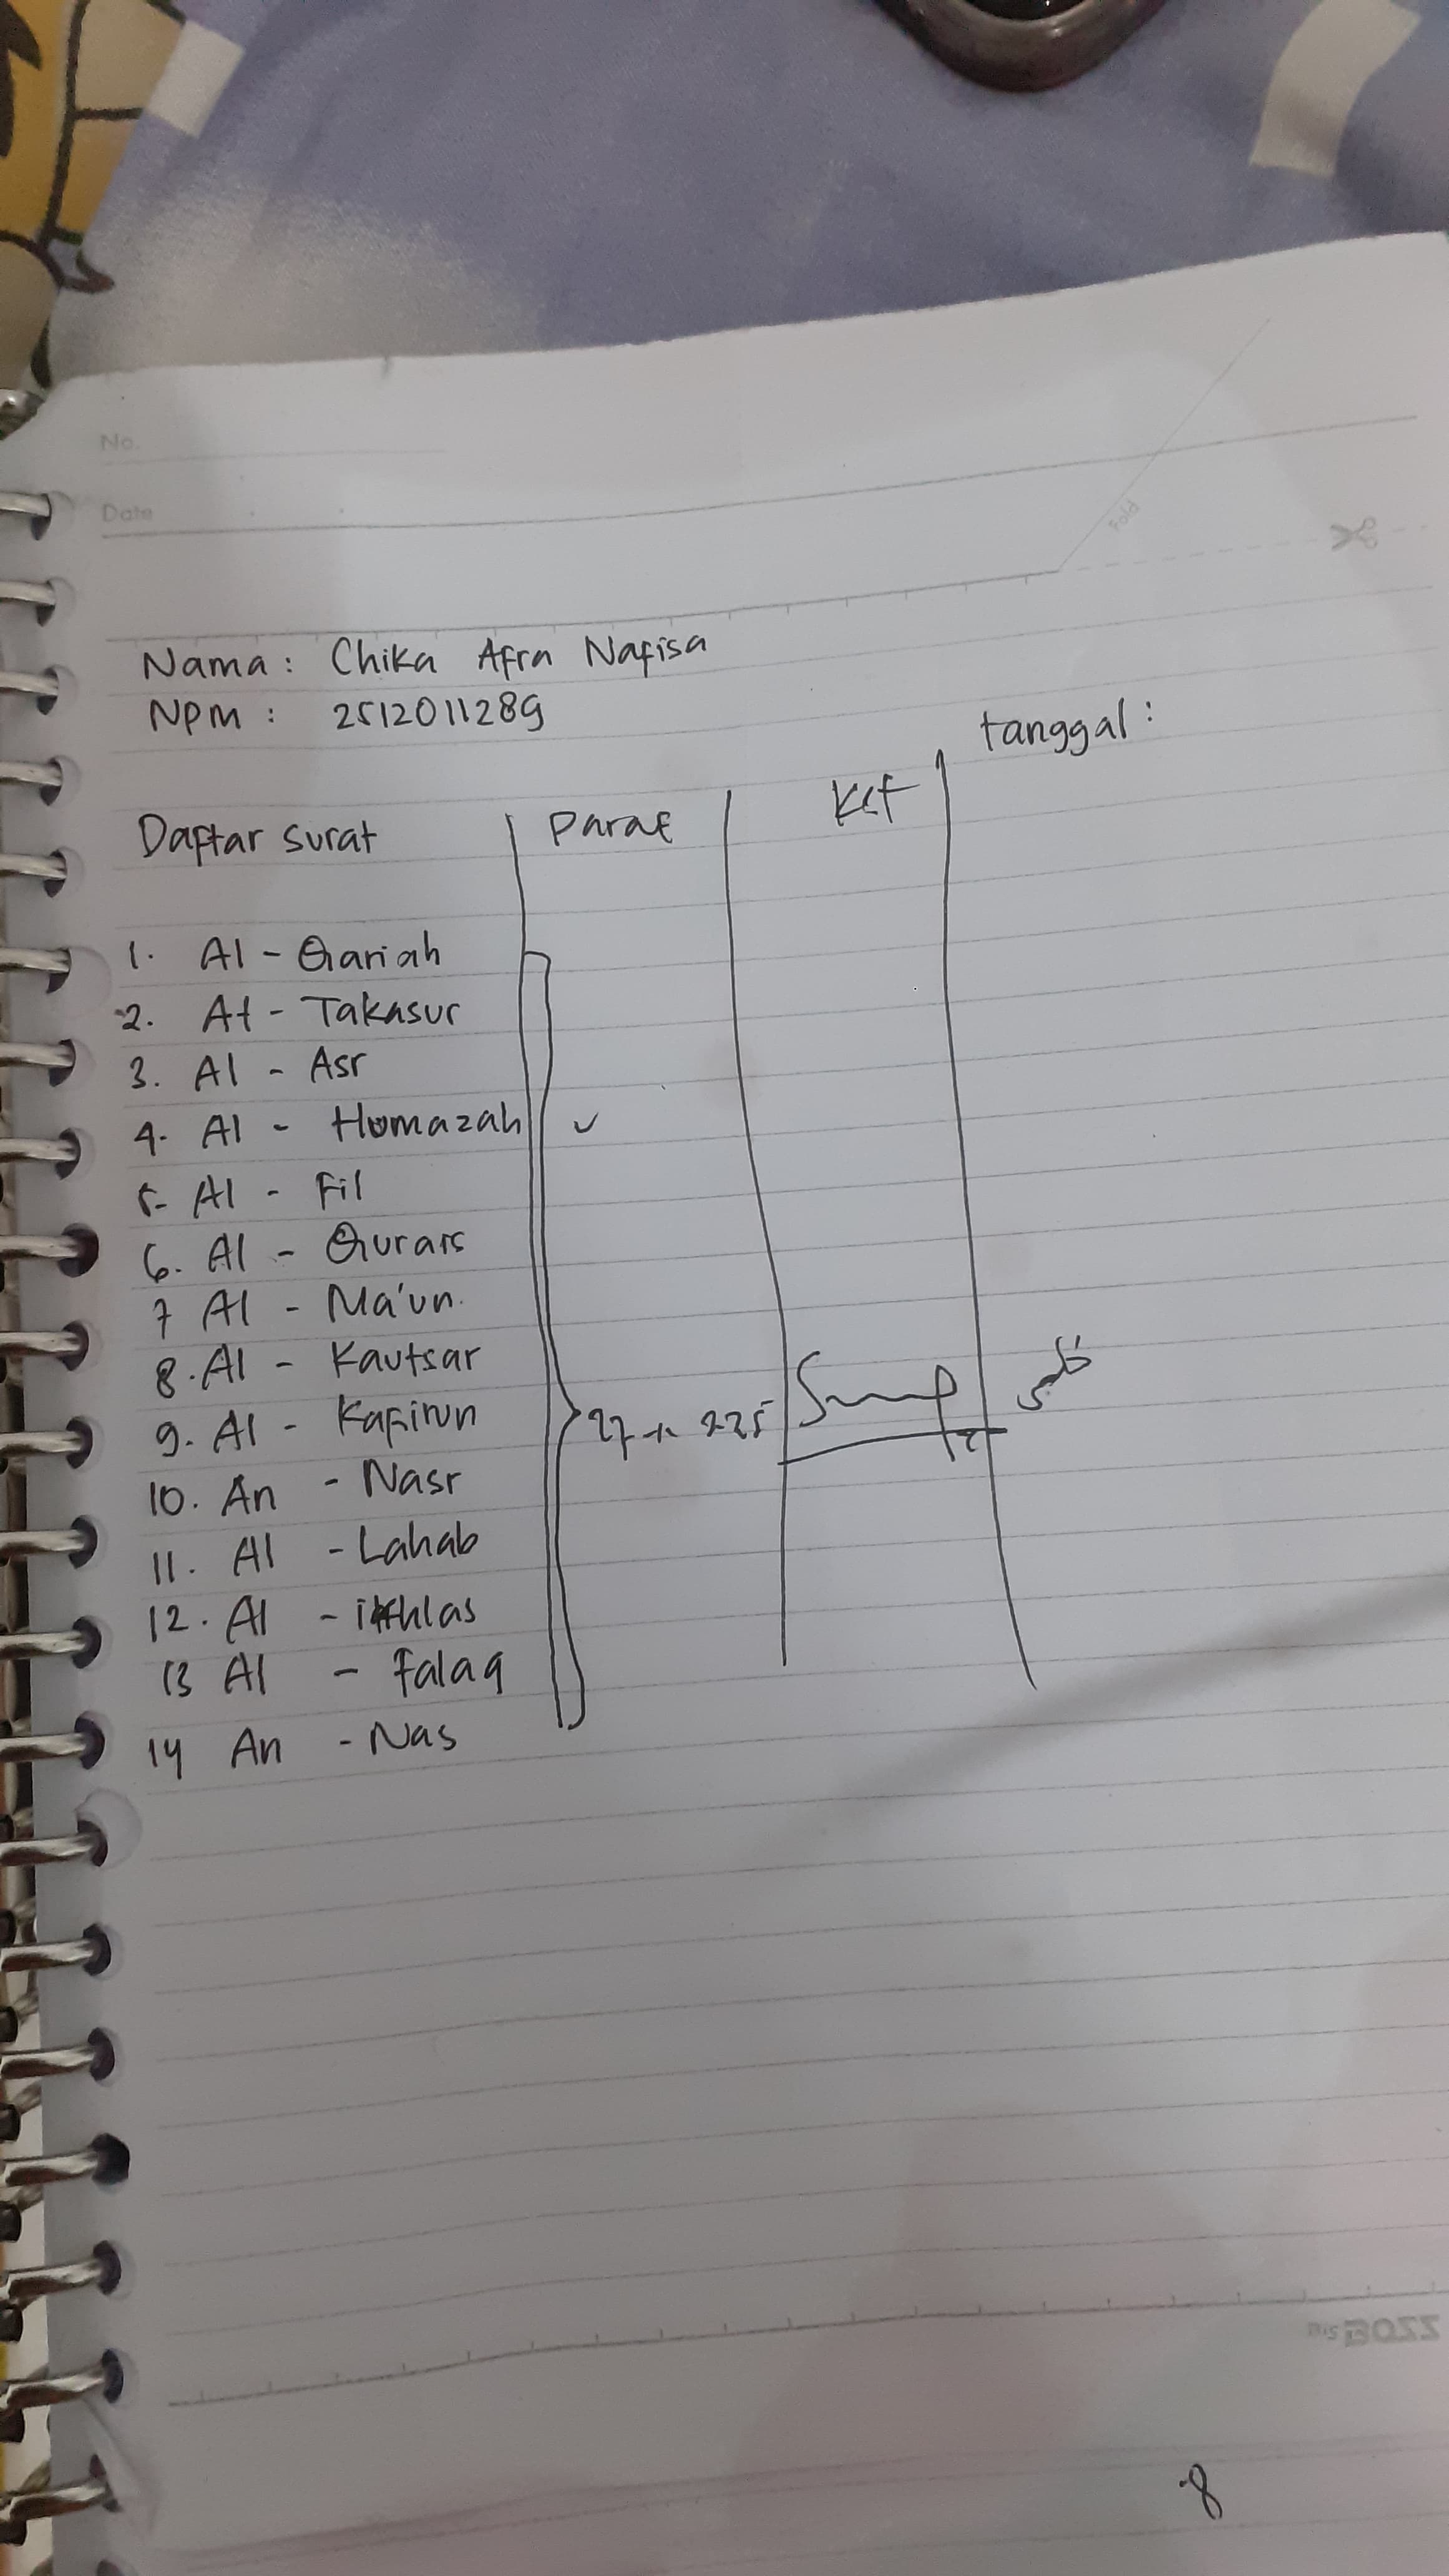 No.
Date
Fold
Nama : Chika Afra Nafisa
NPM : 2512011289
tanggal :
Daftar surat Paraf Ket
1. Al - Qariah
2. At - Takasur
3. Al - Asr
4. Al - Homazah
5. Al - Fil
6. Al - Qurais
7 Al - Ma'un.
8. Al - Kautsar
9. Al - Kafirun
10. An - Nasr
11. Al - Lahab
12. Al - ikhlas
13 Al - Falaq
14 An - Nas
BOSS
8